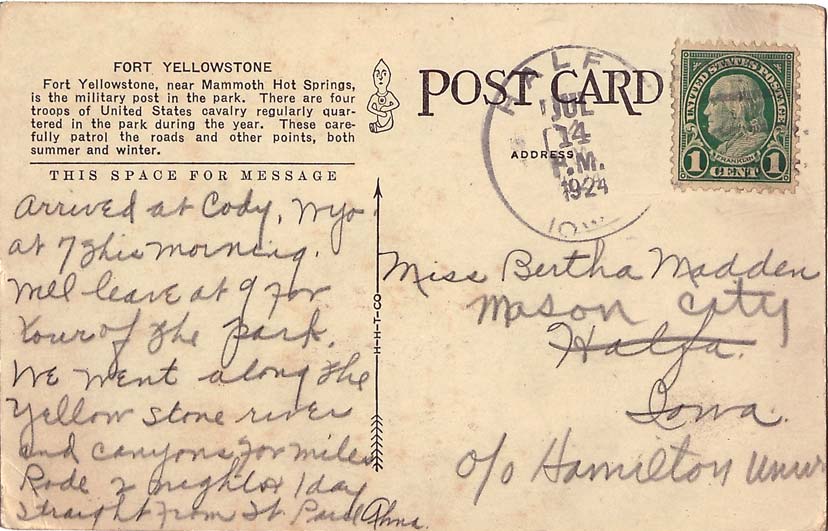 FORT YELLOWSTONE
Fort Yellowstone, near Mammoth Hot Springs,
is the military post in the park. There are four
troops of United States cavalry regularly quar-
tered in the park during the year. These care-
fully patrol the roads and other points, both
summer and winter.
THIS SPACE FOR MESSAGE
Arrived at Cody, Wyo.
at 7 this morning.
Will leave at 9 for
tour of the park.
We went along the
Yellow stone river
and canyons for miles
Rode 2 nights 1 day
straight from St. Paul Alma.
H-H-T-CO
POST CARD
ADDRESS
HALF
JUL
14
P.M.
1924
IOW
UNITED STATES POSTAGE
FRANKLIN
1 CENT 1
Miss Bertha Madden
Mason City
Halfa.
Iowa.
c/o Hamilton Univ